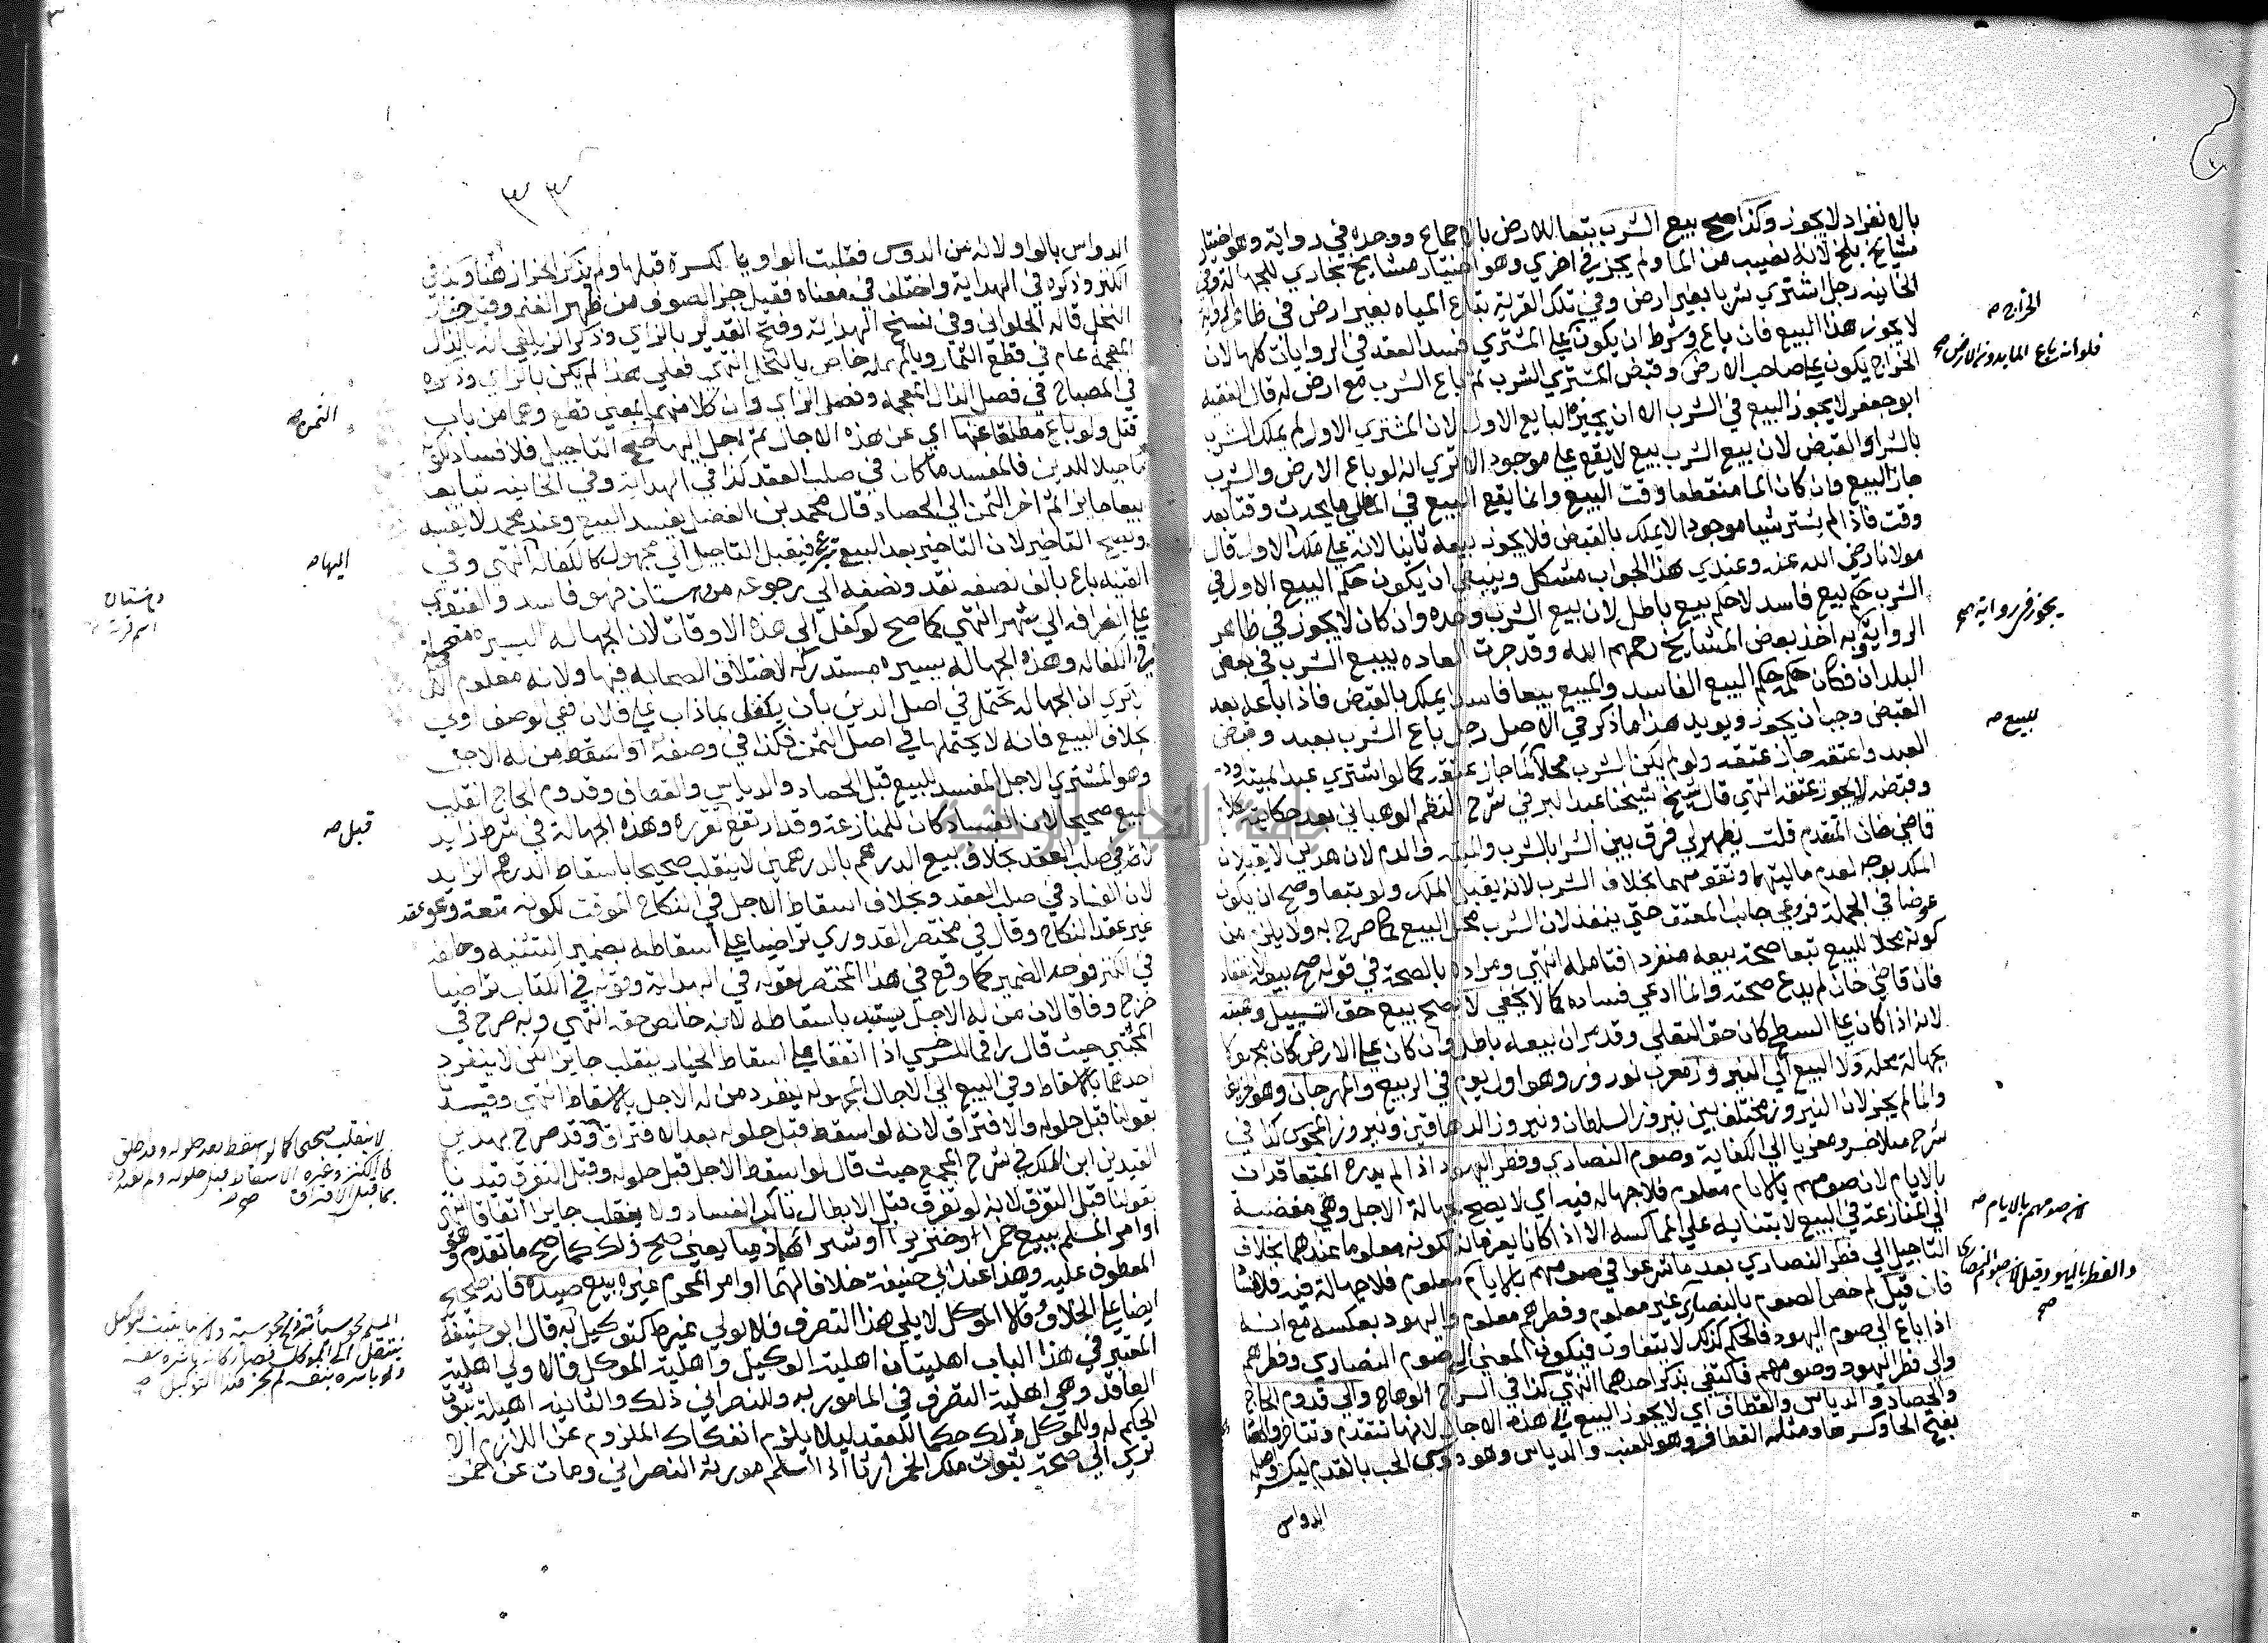 بالانفراد لا يجوز وكذا صح بيع الشرب تبعا للارض بالاجماع ووحده في رواية وهو اختيار
مشايخ بلخ لانه نصيب من الما ولم يجز في اخري وهو اختيار مشايخ بخاري للجهالة وفي
الخانيه رجل اشتري شربا بغير ارض وفي تلك القرية تباع المياه بغير ارض في ظاهر الرواية
لا يجوز هذا البيع فان باع وشرط ان يكون علي المشتري فسد العقد في الروايات كلها لان
الخراج يكون علي صاحب الارض وقبض المشتري الشرب ثم باع الشرب مع ارض له قال الفقيه
ابو جعفر لا يجوز البيع في الشرب الا ان يجيزه البايع الاول لان المشتري الاول لم يملك الشرب
بالشرا والقبض لان بيع الشرب بيع لا يقع علي موجود الا تري انه لو باع الارض والشرب
جاز البيع وان كان الما منقطعا وقت البيع وانما يقع البيع في الما علي ما يحدث وقتا بعد
وقت فاذا لم يشتر شيا موجودا لا يملك بالقبض فلا يجوز بيعه ثانيا لانه علي ملك الاول قال
مولانا رضي الله عنه وعندي هذا الجواب مشكل وينبغي ان يكون حكم البيع الاول في
الشرب حكم بيع فاسد لا حكم بيع باطل لان بيع الشرب وحده وان كان لا يجوز في ظاهر
الرواية وبه اخذ بعض المشايخ رحمهم الله وقد جرت العاده ببيع الشرب في بعض
البلدان فكان حكمه حكم البيع الفاسد والمبيع بيعا فاسدا يملك بالقبض فاذا باعه بعد
القبض وجب ان يجوز ويويد هذا ما ذكر في الاصل رجل باع الشرب بعبد وقبض
العبد واعتقه جاز عتقه ولو لم يكن الشرب محلا لما جاز عتقه كما لو اشتري عبدا بميتة ودم
وقبضه لا يجوز عتقه انتهي قال شيخ شيخنا عبد البر في شرح النظم الوهباني بعد حكايته كلام
قاضي خان المتقدم قلت يظهر لي فرق بين الشرا بالشرب والميتة والدم لان هذين لا يقبلان
الملك بوجه لعدم ماليتهما وتقومهما بخلاف الشرب لانه يقبل الملك ولو تبعا وصح ان يكون
عوضا في الجملة فروعي جانب المعتق حتي ينفذ لان الشرب محل البيع كما صرح به ولا يلزم من
كونه محلا للبيع تبعا صحة بيعه منفردا فتامله انتهي ومراده بالصحة في قوله صح بيعه
فان قاضي خان لم يدع صحته وانما ادعي فساده كما لا يخفي لا يصح بيع حق التسييل وهبته
لانه اذا كان علي السطح كان حق التعلي وقد مر ان بيعه باطل وان كان علي الارض كان مجهولا
بجهالة محله ولا البيع الي النيروز معرب نوروز وهو اول يوم في الربيع والمهرجان وهو
وانما لم يجز لان النيروز مختلف بين نيروز السلطان ونيروز الدهاقين ونيروز المجوس كذا في
شرح معزيا الي الكفاية وصوم النصاري وفطر اليهود اذا لم يدره المتعاقدان
بالايام لان صومهم بالايام معلوم فلا جهالة فيه اي لا يصح لجهالة الاجل وهي مفضية
الي المنازعة في البيع لابتنايه علي المماكسه الا اذا كانا يعرفانه لكونه معلوما عندهما بخلاف
التاجيل الي فطر النصاري بعد ما شرعوا في صومهم بالايام معلوم فلا جهالة فيه فلا
فان قيل لم خص الصوم بالنصاري غير معلوم وفطرهم معلوم واليهود بعكسه مع انه
اذا باع الي صوم اليهود فالحكم كذلك لا تتفاوت فيكون المعني الي صوم النصاري وفطرهم
والي فطر اليهود وصومهم فاكتفي بذكر احدهما انتهي كذا في السراج الوهاج والي قدوم الحاج
والحصاد والدياس والقطاف اي لا يجوز البيع الي هذه الاجال لانها تتقدم وتتاخر والحصاد
بفتح الحا وكسرها ومثله القطاف وهو للعنب والدياس وهو دوس الحب بالقدم
الدواس
الخراج صح
فلو انه باع الما بدون الارض صح
يجوز في رواية صح
للبيع صح
لان صومهم بالايام صح
صح
٣٣
الدواس بالواو لانه من الدوس فقلبت الواو يا لكسرة قبلها ولم يذكر الجزاز هنا وذكر في
الكنز وذكره في الهداية واختلف في معناه فقيل جز الصوف من ظهر الغنم وقيل جزاز
النخل قاله الحلواني وفي نسخ الهداية وفتح القدير بالزاي وذكر الزيلعي انه بالذال
المعجمة عام في قطع الثمار وبالمهملة خاص بالنخل انتهي فعلي هذا لم يكن بالزاي وذكره
في المصباح في فصل الذال المعجمة وفصل الزاي وان كلا منهما بمعني قطع وهما من باب
قتل ولو باع مطلقا عنها اي عن هذه الاجال ثم اجل اليها صح التاجيل فلا فساد لكونه
تاجيلا للدين فالمفسد ما كان في صلب العقد كذا في الهداية وفي الخانيه تبايعا
بيعا جايزا ثم اخر الثمن الي الحصاد قال محمد بن الفضل يفسد البيع وعند محمد لا يفسد
ويصح التاخير لان التاخير بعد البيع تبرع فيقبل التاجيل الي مجهول كالكفالة انتهي وفي
القنيه باع بالف نصفه نقد ونصفه الي رجوعه من دهستان فهو فاسد والفتوي
علي انصرافه الي شهر انتهي كما صح لو كفل الي هذه الاوقات لان الجهالة اليسيره متحملة
في الكفالة وهذه الجهالة يسيره مستدركه لاختلاف الصحابه فيها ولانه معلوم الاصل
الا تري ان الجهالة تحتمل في اصل الدين بان يكفل بما ذاب علي فلان ففي الوصف اولي
بخلاف البيع فانه لا يحتملها في اصل الثمن فكذا في وصفه او اسقط من له الاجل
وهو المشتري الاجل المفسد للبيع قبل الحصاد والدياس والقطاف وقدوم الحاج انقلب
البيع صحيحا لان الفساد كان للمنازعة وقد ارتفع تقرره وهذه الجهالة في شرط زايد
لا في صلب العقد بخلاف بيع الدرهم بالدرهمين لا ينقلب صحيحا باسقاط الدرهم الزايد
لان الفساد في صلب العقد وبخلاف اسقاط الاجل في النكاح الموقت لكونه متعة وهو عقد
غير عقد النكاح وقال في مختصر القدوري تراضيا علي اسقاطه بضمير التثنيه وخالفه
في الكنز فوحد الضمير كما وقع في هذا المختصر لقوله في الهداية وقوله في الكتاب تراضيا
خرج وفاقا لان من له الاجل يستبد باسقاطه لانه خالص حقه انتهي وبه صرح في
المجتبي حيث قال راقما للسرخسي اذا اتفقا علي اسقاط الخيار ينقلب جايزا لكن لا ينفرد
احدهما بالاسقاط وفي البيع الي الاجال المجهولة ينفرد من له الاجل بالاسقاط انتهي وقيدنا
بقولنا قبل حلوله والافتراق لانه لو اسقط قبل حلوله بعد الافتراق وقد صرح بهذين
القيدين ابن الملك في شرح المجمع حيث قال لو اسقط الاجل قبل حلوله وقبل التفرق قيدنا
بقولنا قبل التفرق لانه لو تفرق قبل الابطال تاكد الفساد ولا ينقلب جايزا اتفاقا انتهي
او امر المسلم ببيع خمر او خنزير او شرائهما ذميا يعني صح ذلك كما صح ما تقدم وهو
المعطوف عليه وهذا عند ابي حنيفة خلافا لهما او امر المحرم غيره ببيع صيده فانه صحيح
ايضا علي الخلاف وقالا الموكل لا يلي هذا التصرف فلا يولي غيره كتوكيل به قال ابو حنيفة
المعتبر في هذا الباب اهليتان اهلية الوكيل واهلية الموكل فالاولي اهلية
العاقد وهي اهلية التصرف في المامور به وللنصراني ذلك والثانيه اهلية ثبوت
الحكم له وللموكل ذلك حكما للعقد ليلا يلزم انفكاك الملزوم عن اللازم الا
تري الي صحة ثبوت ملك الخمر ارثا اذا اسلم مورثه النصراني ومات عن خمر
الثمن صح
اليها صح
دهستان
اسم قرية
قبل صح